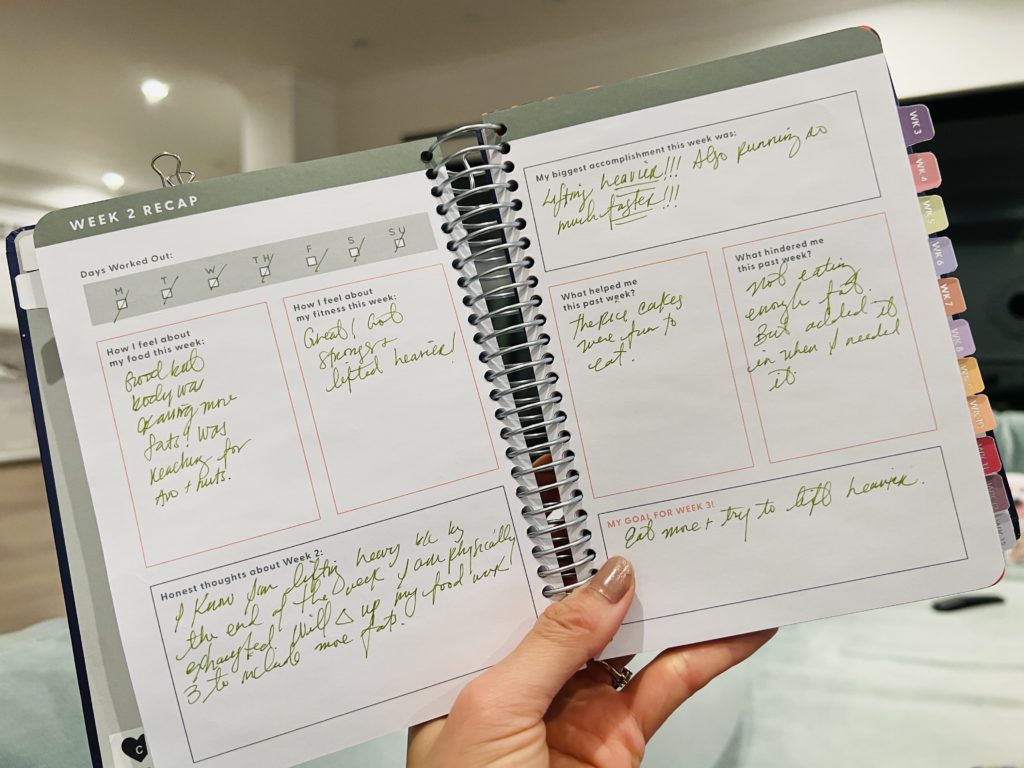 WEEK 2 RECAP
Days Worked Out:
M T W TH F S SU
How I feel about
my food this week:
Good but
body was
craving more
fats! Was
reaching for
Avo + nuts.
How I feel about
my fitness this week:
Great! Got
stronger
lifted heavier!
Honest thoughts about Week 2:
I know I am lifting heavy b/c by
the end of the week I am physically
exhausted! Will Δ up my food week
3 to include more fats.
My biggest accomplishment this week was:
Lifting heavier!!! Also running so
much faster!!!
What helped me
this past week?
The Rice cakes
were fun to
eat.
What hindered me
this past week?
Not eating
enough fat.
But added it
in when I needed
it
MY GOAL FOR WEEK 3!
Eat more + try to lift heavier.
WK 3
WK 4
WK 5
WK 6
WK 7
WK 8
WK 10
C